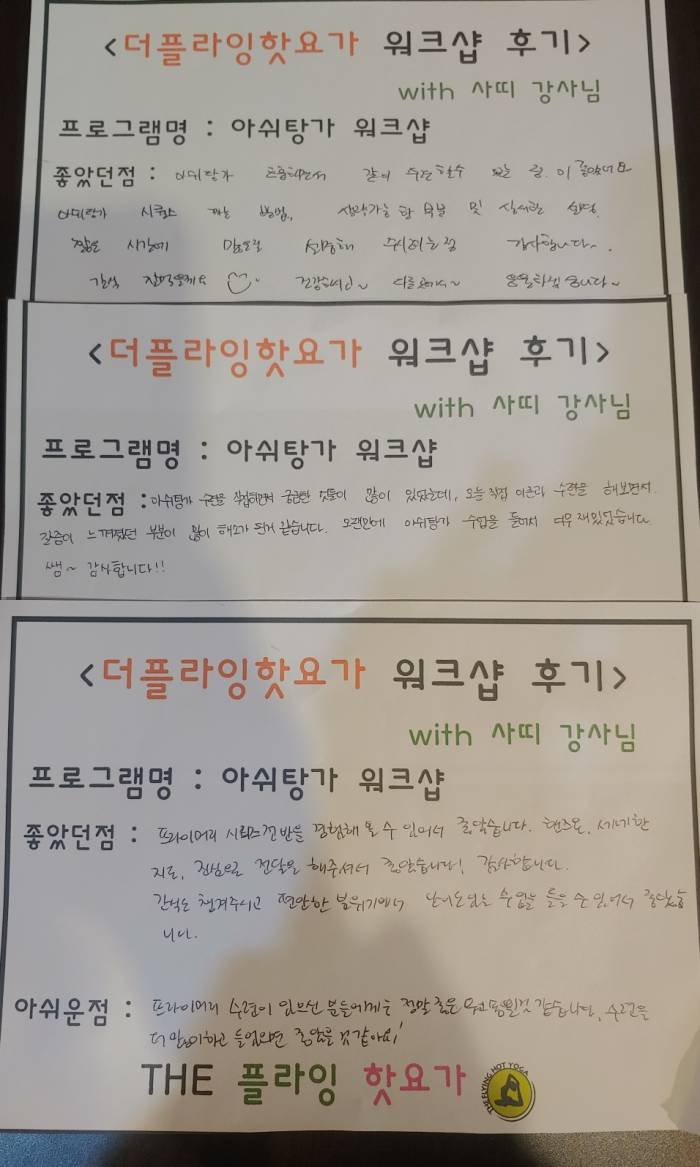 <더플라잉핫요가 워크샵 후기>
with 사띠 강사님
프로그램명 : 아쉬탕가 워크샵
좋았던점 : 아쉬탕가 같이 수련할수 있는 이 좋았어요
아쉬탕가 시퀀스 하는 방법, 생략가능한 부분 및 설명.
짧은 시간에 감사합니다~.
간식 잘먹을게요 건강하시고~ 다음에~
<더플라잉핫요가 워크샵 후기>
with 사띠 강사님
프로그램명 : 아쉬탕가 워크샵
좋았던점 : 아쉬탕가 수련을 궁금한 것들이 많이 있었는데, 오늘 직접 이론과 수련을 해보면서
갈증이 느껴졌던 부분이 많이 해소가 된거 같습니다. 오랜만에 아쉬탕가 수업을 들어서 너무 재밌었습니다
쌤~ 감사합니다!!
<더플라잉핫요가 워크샵 후기>
with 사띠 강사님
프로그램명 : 아쉬탕가 워크샵
좋았던점 : 프라이머리 시리즈 전반을 경험해 볼 수 있어서 좋았습니다. 핸즈온, 세세한
지도, 진심으로 전달을 해주셔서 좋았습니다! 감사합니다.
간식도 챙겨주시고 편안한 분위기에서 수업을 들을 수 있어서 좋았습
니다.
아쉬운점 : 프라이머리 수련이 있으신 분들에게는 정말 좋은 될것 같습니다. 수련을
더 많이하고 들었으면 좋았을 것 같아요!
THE 플라잉 핫요가
THE FLYING HOT YOGA